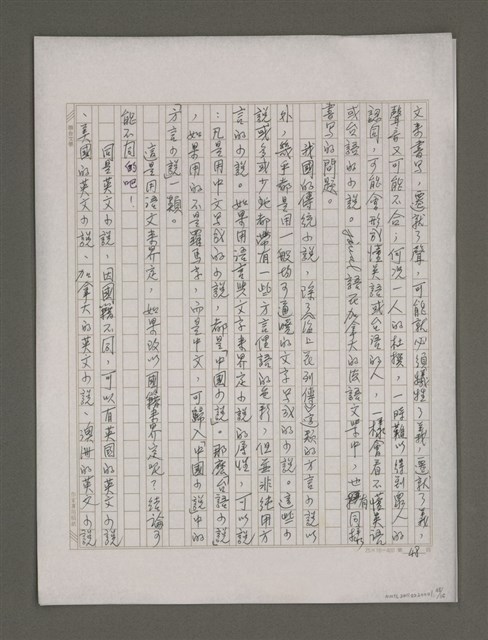 文來書寫，遷就了聲，可能就必須犧牲了義，遷就了義，
聲音又可能不合；何況一人的杜撰，一時難以得到眾人的
認同，可能會形成懂英語或台語的人，一樣會看不懂英語
或台語的小說。在加拿大的法語文學中，也有同樣
書寫的問題。
我國的傳統小說，除了「海上花列傳」這類的方言小說以
外，幾乎都是用一般均可通曉的文字寫成的小說。這些小
說或多或少地都帶有一些方言俚語的色彩，但並非純用方
言的小說。如果用語言與文字來界定小說的屬性，可以說
：凡是用中文寫成的小說，都是「中國小說」。那麼台語小說
，如果用的不是羅馬字，而是中文，可歸入「中國小說」中的
「方言小說」一類。
這是用語文來界定，如果改以國籍來界定呢？結論可
能不同的吧！
同是英文小說，因國籍不同，可以有英國的英文小說
、美國的英文小說、加拿大的英文小說、澳洲的英文小說
48